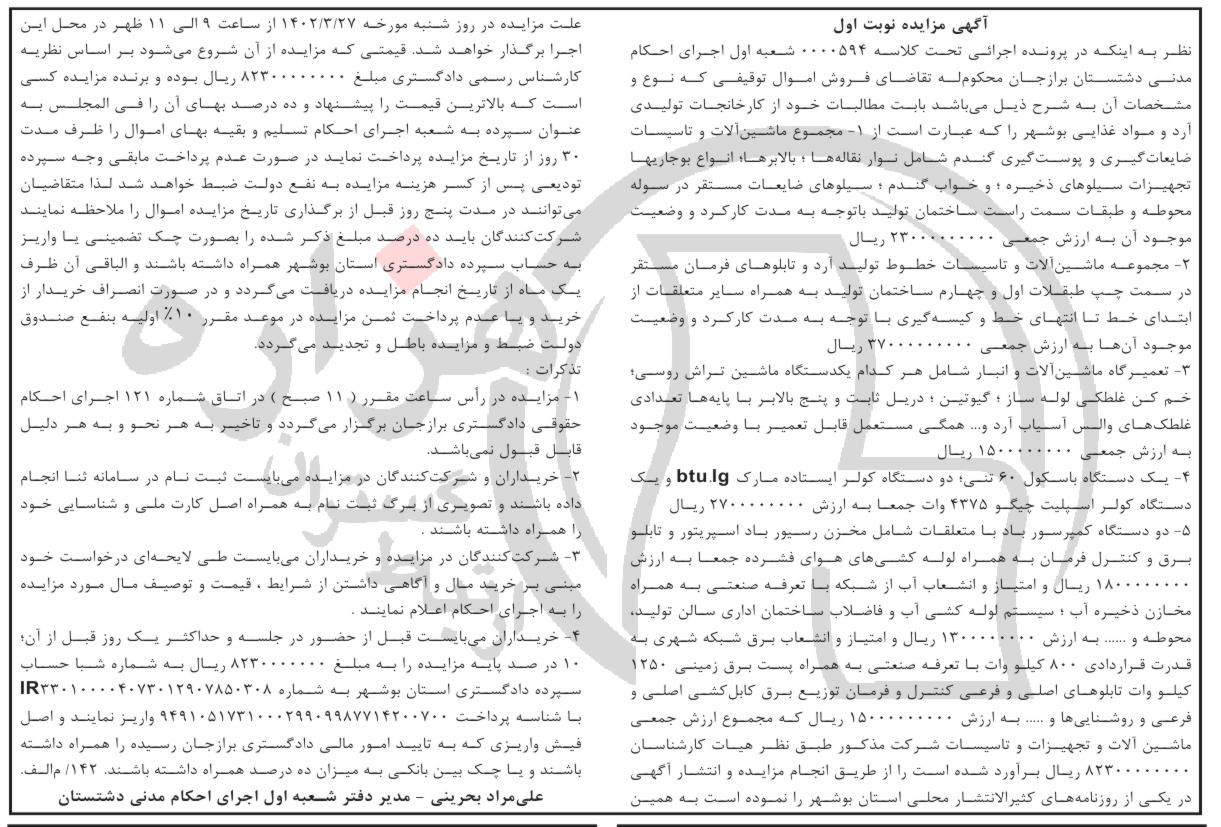 آگهی مزایده نوبت اول
نظر به اینکه در پرونده اجرائی تحت کلاسه ۰۰۰۰۵۹۴ شعبه اول اجرای احکام
مدنی دشتستان برازجان محکوم‌له تقاضای فروش اموال توقیفی که نوع و
مشخصات آن به شرح ذیل می‌باشد بابت مطالبات خود از کارخانجات تولیدی
آرد و مواد غذایی بوشهر را که عبارت است از ۱- مجموع ماشین‌آلات و تاسیسات
ضایعات‌گیری و پوست‌گیری گندم شامل نوار نقاله‌ها ؛ بالابرها؛ انواع بوجاریها
تجهیزات سیلوهای ذخیره ؛ و خواب گندم ؛ سیلوهای ضایعات مستقر در سوله
محوطه و طبقات سمت راست ساختمان تولید باتوجه به مدت کارکرد و وضعیت
موجود آن به ارزش جمعی ۲۳۰۰۰۰۰۰۰۰۰ ریال
۲- مجموعه ماشین‌آلات و تاسیسات خطوط تولید آرد و تابلوهای فرمان مستقر
در سمت چپ طبقلات اول و چهارم ساختمان تولید به همراه سایر متعلقات از
ابتدای خط تا انتهای خط و کیسه‌گیری با توجه به مدت کارکرد و وضعیت
موجود آن‌ها به ارزش جمعی ۳۷۰۰۰۰۰۰۰۰۰ ریال
۳- تعمیرگاه ماشین‌آلات و انبار شامل هر کدام یکدستگاه ماشین تراش روسی؛
خم کن غلطکی لوله ساز ؛ گیوتین ؛ دریل ثابت و پنج بالابر با پایه‌ها تعدادی
غلطک‌های والس آسیاب آرد و... همگی مستعمل قابل تعمیر با وضعیت موجود
به ارزش جمعی ۱۵۰۰۰۰۰۰۰۰ ریال
۴- یک دستگاه باسکول ۶۰ تنی؛ دو دستگاه کولر ایستاده مارک btu.lg و یک
دستگاه کولر اسپلیت چیگو ۴۳۷۵ وات جمعا به ارزش ۲۷۰۰۰۰۰۰۰۰ ریال
۵- دو دستگاه کمپرسور باد با متعلقات شامل مخزن رسیور باد اسپریتور و تابلو
برق و کنترل فرمان به همراه لوله کشی‌های هوای فشرده جمعا به ارزش
۱۸۰۰۰۰۰۰۰۰ ریال و امتیاز و انشعاب آب از شبکه با تعرفه صنعتی به همراه
مخازن ذخیره آب ؛ سیستم لوله کشی آب و فاضلاب ساختمان اداری سالن تولید،
محوطه و ...... به ارزش ۱۳۰۰۰۰۰۰۰۰ ریال و امتیاز و انشعاب برق شبکه شهری به
قدرت قراردادی ۸۰۰ کیلو وات با تعرفه صنعتی به همراه پست برق زمینی ۱۲۵۰
کیلو وات تابلوهای اصلی و فرعی کنترل و فرمان توزیع برق کابل‌کشی اصلی و
فرعی و روشنایی‌ها و ..... به ارزش ۱۵۰۰۰۰۰۰۰۰۰ ریال که مجموع ارزش جمعی
ماشین آلات و تجهیزات و تاسیسات شرکت مذکور طبق نظر هیات کارشناسان
۸۲۳۰۰۰۰۰۰۰۰ ریال برآورد شده است را از طریق انجام مزایده و انتشار آگهی
در یکی از روزنامه‌های کثیرالانتشار محلی استان بوشهر را نموده است به همین
علت مزایده در روز شنبه مورخه ۱۴۰۲/۳/۲۷ از ساعت ۹ الی ۱۱ ظهر در محل این
اجرا برگذار خواهد شد. قیمتی که مزایده از آن شروع می‌شود بر اساس نظریه
کارشناس رسمی دادگستری مبلغ ۸۲۳۰۰۰۰۰۰۰۰ ریال بوده و برنده مزایده کسی
است که بالاترین قیمت را پیشنهاد و ده درصد بهای آن را فی المجلس به
عنوان سپرده به شعبه اجرای احکام تسلیم و بقیه بهای اموال را ظرف مدت
۳۰ روز از تاریخ مزایده پرداخت نماید در صورت عدم پرداخت مابقی وجه سپرده
تودیعی پس از کسر هزینه مزایده به نفع دولت ضبط خواهد شد لذا متقاضیان
می‌توانند در مدت پنج روز قبل از برگذاری تاریخ مزایده اموال را ملاحظه نمایند
شرکت‌کنندگان باید ده درصد مبلغ ذکر شده را بصورت چک تضمینی یا واریز
به حساب سپرده دادگستری استان بوشهر همراه داشته باشند و الباقی آن ظرف
یک ماه از تاریخ انجام مزایده دریافت می‌گردد و در صورت انصراف خریدار از
خرید و یا عدم پرداخت ثمن مزایده در موعد مقرر ۱۰٪ اولیه بنفع صندوق
دولت ضبط و مزایده باطل و تجدید می‌گردد.
تذکرات :
۱- مزایده در رأس ساعت مقرر ( ۱۱ صبح ) در اتاق شماره ۱۲۱ اجرای احکام
حقوقی دادگستری برازجان برگزار می‌گردد و تاخیر به هر نحو و به هر دلیل
قابل قبول نمی‌باشد.
۲- خریداران و شرکت‌کنندگان در مزایده می‌بایست ثبت نام در سامانه ثنا انجام
داده باشند و تصویری از برگ ثبت نام به همراه اصل کارت ملی و شناسایی خود
را همراه داشته باشند .
۳- شرکت‌کنندگان در مزایده و خریداران می‌بایست طی لایحه‌ای درخواست خود
مبنی بر خرید مال و آگاهی داشتن از شرایط ، قیمت و توصیف مال مورد مزایده
را به اجرای احکام اعلام نمایند .
۴- خریداران می‌بایست قبل از حضور در جلسه و حداکثر یک روز قبل از آن؛
۱۰ در صد پایه مزایده را به مبلغ ۸۲۳۰۰۰۰۰۰۰ ریال به شماره شبا حساب
سپرده دادگستری استان بوشهر به شماره IR۳۳۰۱۰۰۰۰۴۰۷۳۰۱۲۹۰۷۸۵۰۳۰۸
با شناسه پرداخت ۹۴۹۱۰۵۱۷۳۱۰۰۰۲۹۹۰۹۹۸۷۷۱۴۲۰۰۷۰۰ واریز نمایند و اصل
فیش واریزی که به تایید امور مالی دادگستری برازجان رسیده را همراه داشته
باشند و یا چک بین بانکی به میزان ده درصد همراه داشته باشند. ۱۴۲/ م‌الف.
علی‌مراد بحرینی - مدیر دفتر شعبه اول اجرای احکام مدنی دشتستان
هزاره
ارتباط گستران